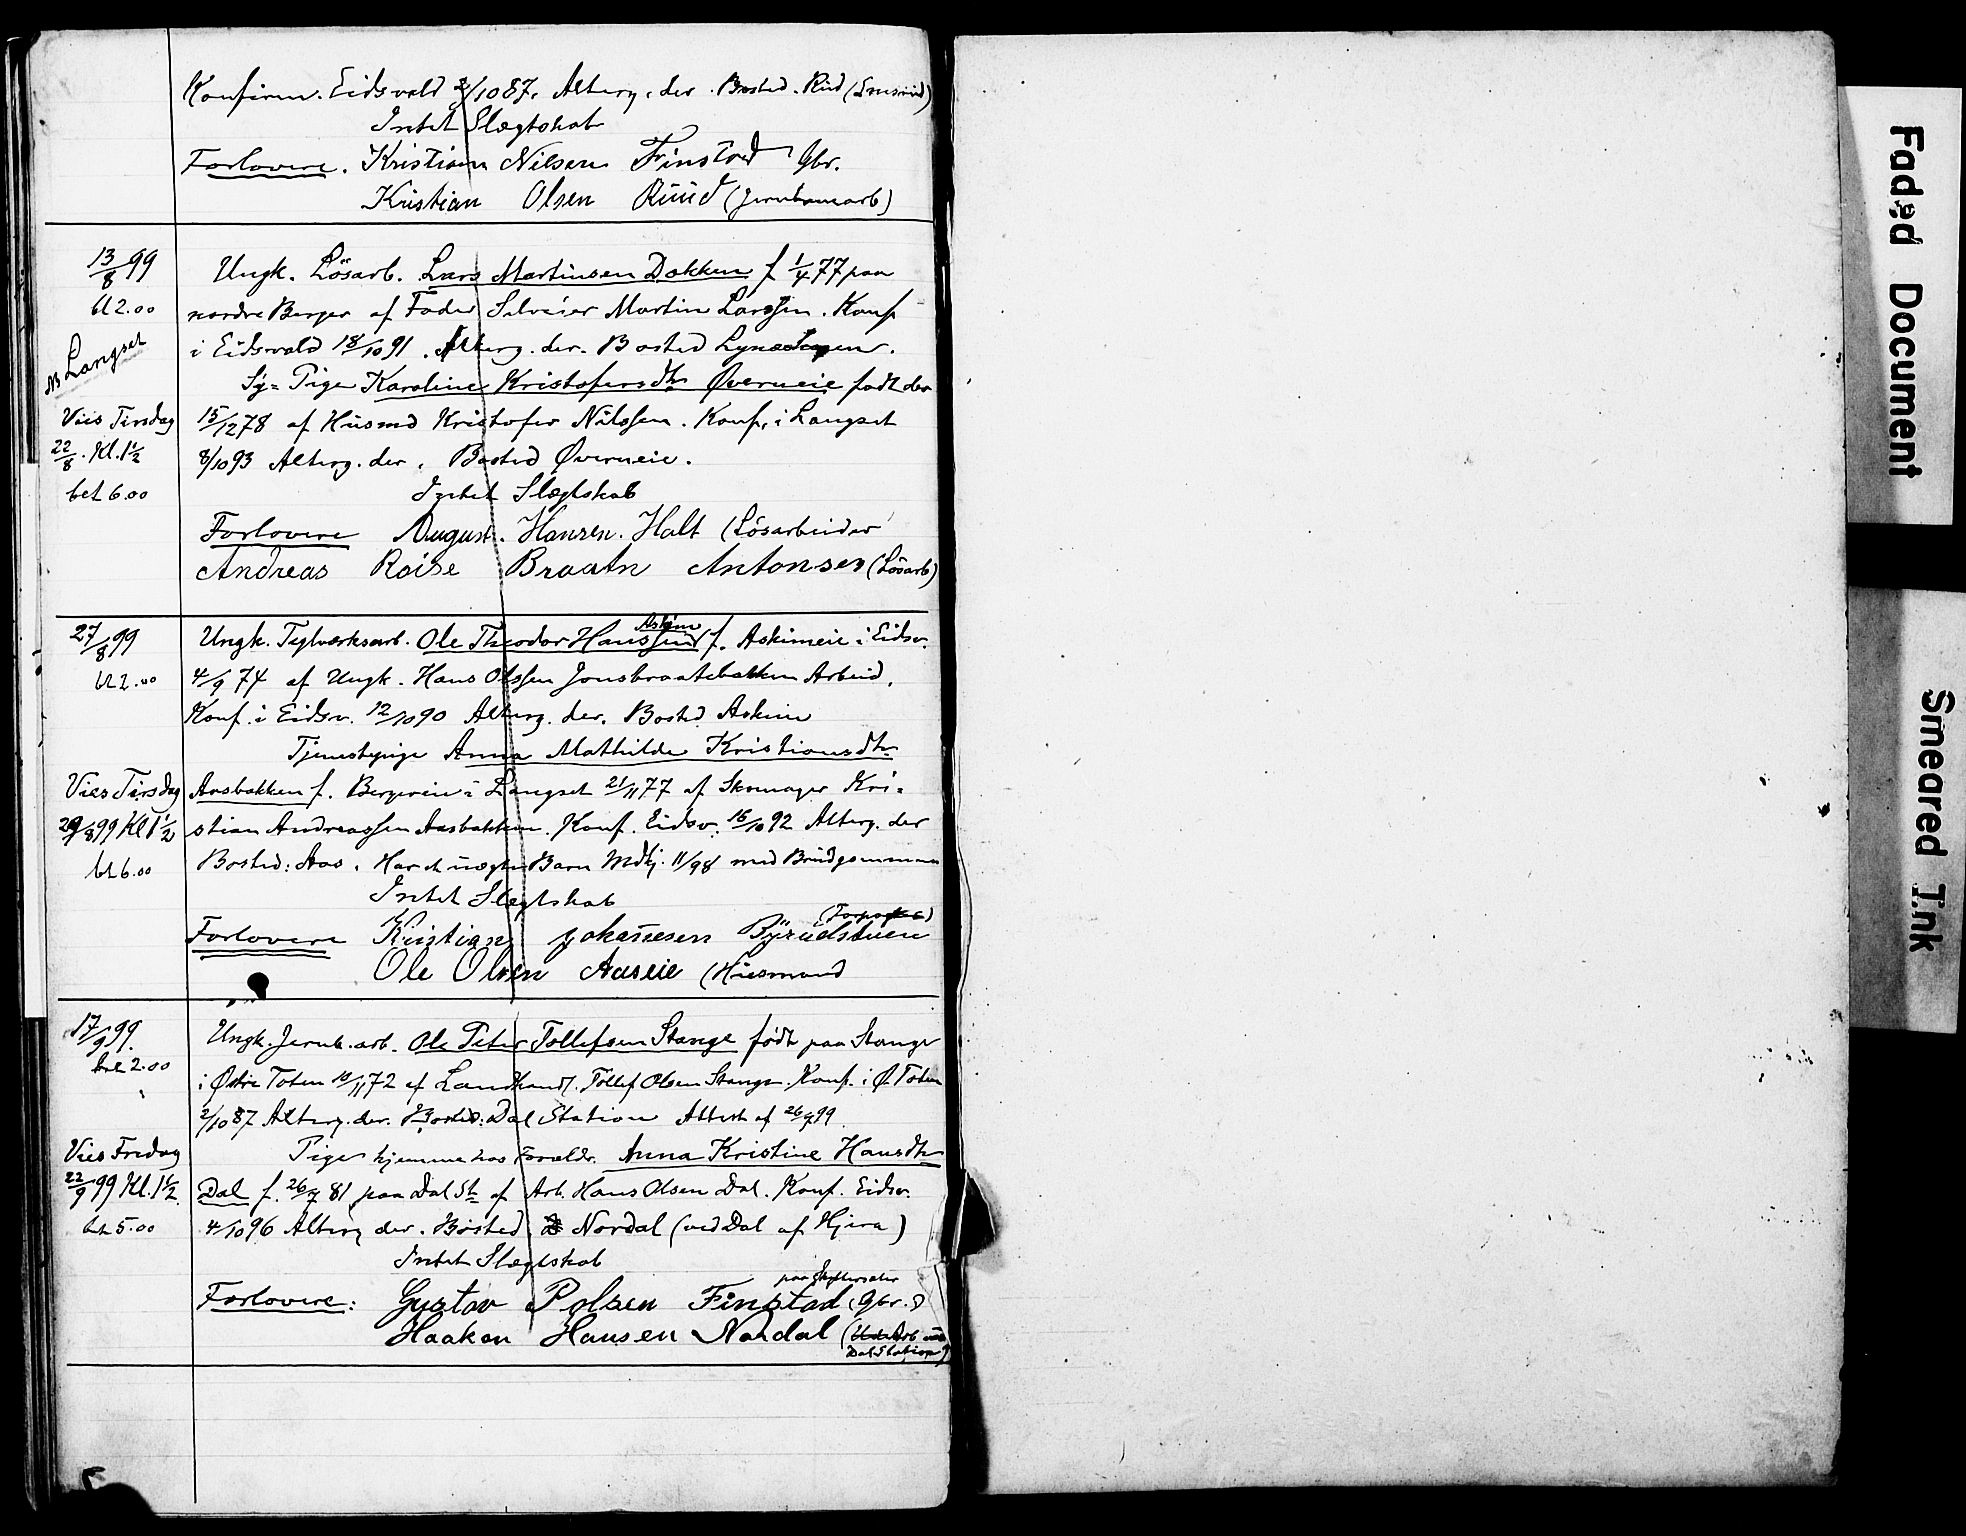 Konfirm. Eidsvold 2/10 87. Alterg. der. Bosted. Rud
Intet Slægtskab
Forlovere. Kristian Nilsen Finstad Gbr.
Kristian Olsen Ruud (Jernbanearb)
13/8 99 Ungk. Lösarb. Lars Martinsen Dokken f 1/4 77 paa
bt 2.00 nordre Berger af Fader Selveier Martin Larssen. Konf
NB Langset i Eidsvold 18/10 91. Alterg. der. Bosted
Sy-Pige Karoline Kristofersdtr Øverneie født den
Vies Tirsdag 15/12 78 af Husmd Kristofer Nilssen. Konf. i Langset
22/8. Kl. 1 1/2 8/10 93 Alterg. der. Bosted Øverneie.
bet 6.00 Intet Slægtskab
Forlovere August. Hansen. Halt (Lösarbeider
Andreas Roise Braatn Antonsen (Lösarb)
27/8 99 Ungk. Teglværksarb. Ole Theodor Hanssen Askim f. Askimeie i Eidsv.
bt 2.00 4/9 74 af Ungk. Hans Olssen Jonsbraatebakken Arbeid.
Konf. i Eidsv. 12/10 90 Alterg. der. Bosted Askim
Tjenestepige Anna Mathilde Kristiansdtr
Vies Tirsdag Aasbakken f. Bergereie i Langset 21/11 77 af Skomager Kri-
29/8 99 Kl 1 1/2 stian Andreassen Aasbakken. Konf. Eidsv. 16/10 92 Alterg. der
bt 6.00 Bosted: Aas. Har et uægte Barn Mdkj. 11/98 med Brudgommen
Intet Slægtskab
Forlovere Kristian Johannesen Byrudstuen
Ole Olsen Aaseie (Husmand
17/9 99. Ungk. Jernb. arb. Ole Peter Tollefsen Stange født paa Stange
bet 2.00 i Østre Toten 10/11 72 af Landhandl. Tollef Olsen Stange. Konf. i Ø. Toten
2/10 87 Alterg. der. Bosted: Dal Station Attest af 26/7 99.
Vies Fredag Pige hjemme hos Foreldr. Anna Kristine Hansdtr
22/9 99 Kl. 1 1/2 Dal f. 26/7 81 paa Dal St af Arb. Hans Olsen Dal. Konf. Eidsv.
bet 5.00 4/10 96 Alterg der. Bosted Nordal (ved Dal af Hjera)
Intet Slægtskab
Forlovere: Gustav Polsen Finstad (Gbr.)
Haakon Hansen Nordal
Dal Station)
Faded Document
Smeared Ink